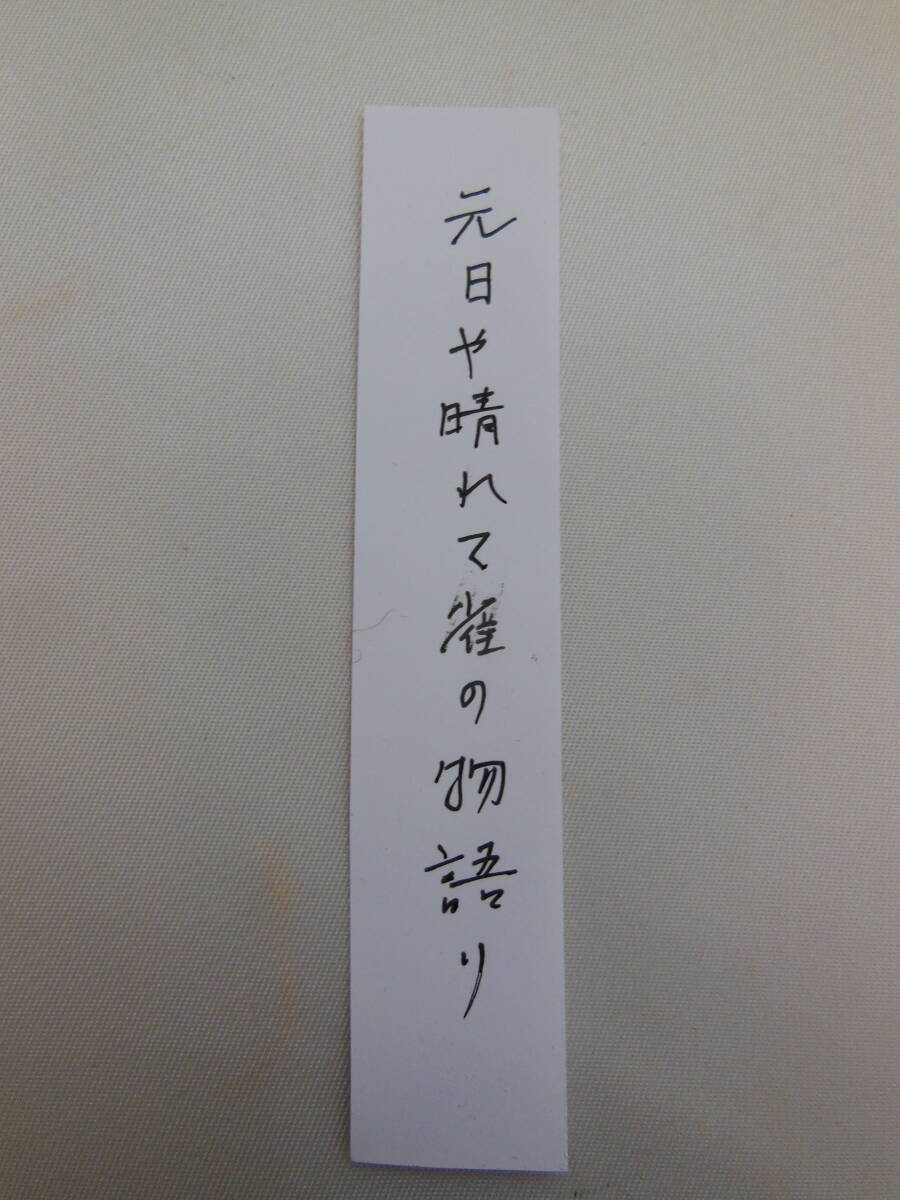 元日や晴れて雀の物語り